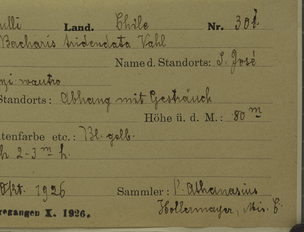 ulli Land. Chile Nr. 301.
Bacharis tridendata Vahl
Name d. Standorts: S. José
Standorts: Abhang mit Gesträuch
Höhe ü. d. M.: 80 m
tenfarbe etc.: Bl. gelb.
h 2-3 m h.
Okt. 1926 Sammler: P. Athanasius
gegangen X. 1926. Hollermayer, Mis. C.